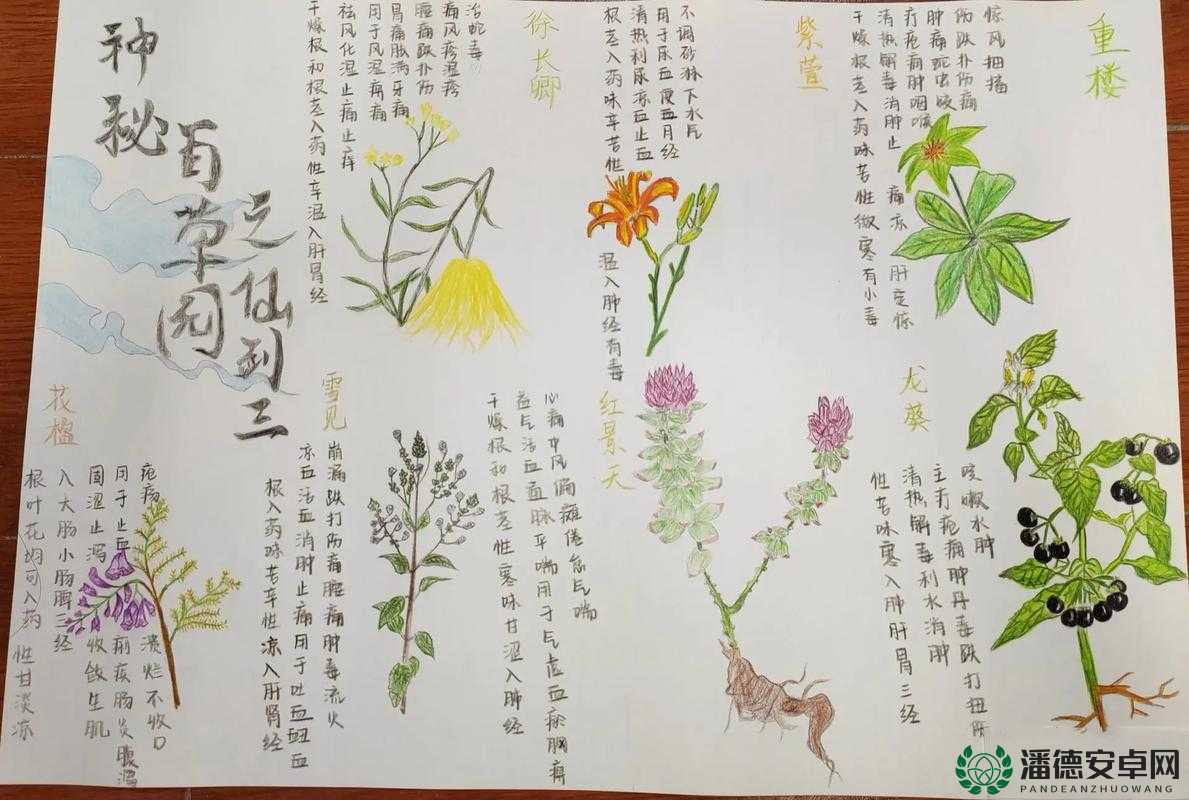 神秘
百草园
之仙剑三
重楼
干燥根茎入药味苦性微寒有小毒
清热解毒消肿止痛凉肝定惊
疗疮痈肿咽喉
肿痛蛇虫咬
伤跌扑伤痛
惊风抽搐
紫萱
根茎入药味辛苦性温入肺经有毒
清热利尿凉血止血
用于尿血便血月经
不调砂淋下水气
徐长卿
干燥根和根茎入药性辛温入肝肾经
祛风化湿止痛止痒
用于风湿痹痛
胃痛胀满牙痛
腰痛跌扑伤
痛风疹湿疹
治蛇毒
花楹
根叶花均可入药性甘淡凉
入大肠小肠脾三经
固涩止泻收敛生肌
用于止血痢疾肠炎腹泻
疮疡溃烂不收口
雪见
根入药味苦辛性凉入肝肾经
凉血活血消肿止痛用于吐血衄血
崩漏跌打伤痛腰痛肿毒流火
红景天
干燥根和根茎性寒味甘涩入肺经
益气活血血脉平喘用于气虚血瘀胸痹
心痛中风偏瘫倦怠气喘
龙葵
性苦味寒入肺肝胃三经
清热解毒利水消肿
主疗疮痈肿丹毒跌打扭伤
咳嗽水肿
潘德安卓网
PANDEANZHUOWANG